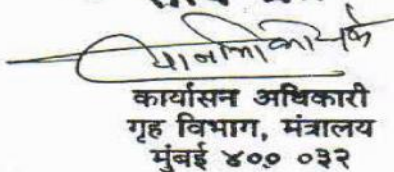 कार्यासन अधिकारी
गृह विभाग, मंत्रालय
मुंबई ४०० ०३२